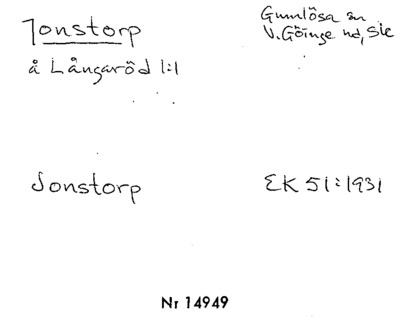 Jonstorp
Gumlösa sn
V. Göinge hd, Sk
å Långaröd 1:1
Jonstorp
EK 51:1931
Nr 14949